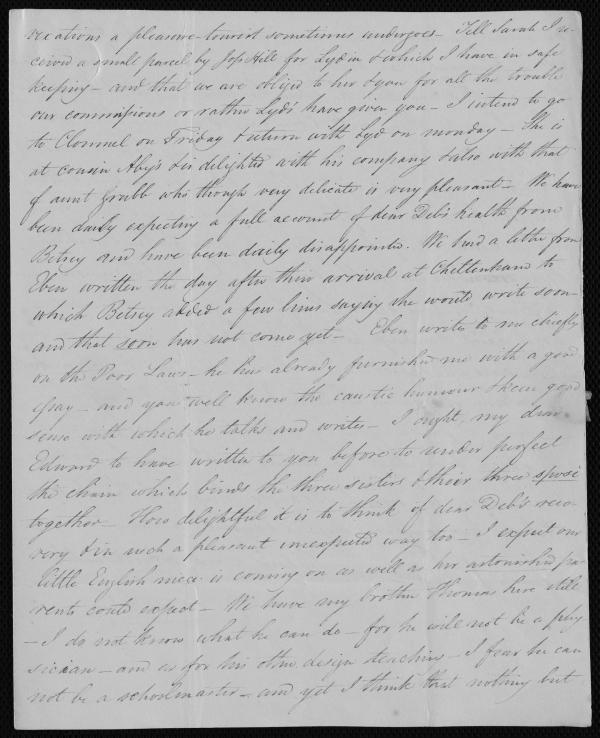 vexations a pleasure-tourist sometimes undergoes - Tell Sarah I re-
ceived a small parcel by Josh Hill for Lydia & which I have in safe
keeping - and that we are obliged to her & you for all the trouble
our commissions or rather Lyd's have given you - I intend to go
to Clonmel on Friday & return with Lyd on monday - She is
at cousin Aby's & is delighted with his company & also with that
of aunt Grubb who though very delicate is very pleasant - We have
been daily expecting a full account of dear Deb's health from
Betsey and have been daily disappointed. We had a letter from
Eben written the day after their arrival at Cheltenham to
which Betsey added a few lines saying she would write soon -
and that soon has not come yet - Eben writes to me chiefly
on the Poor Laws - he has already furnished me with a good
essay - and you well know the caustic humour & keen good
sense with which he talks and writes - I ought, my dear
Edward to have written to you before to render perfect
the chain which binds the three sisters & their three sposi
together - How delightful it is to think of dear Deb's reco-
very & in such a pleasant unexpected way too - I expect our
little English niece is coming on as well as her astonished pa-
rents could expect - We have my brother Thomas here still
- I do not know what he can do - for he will not be a phy
sician - and as for his other design teaching - I fear he can
not be a schoolmaster - and yet I think that nothing but